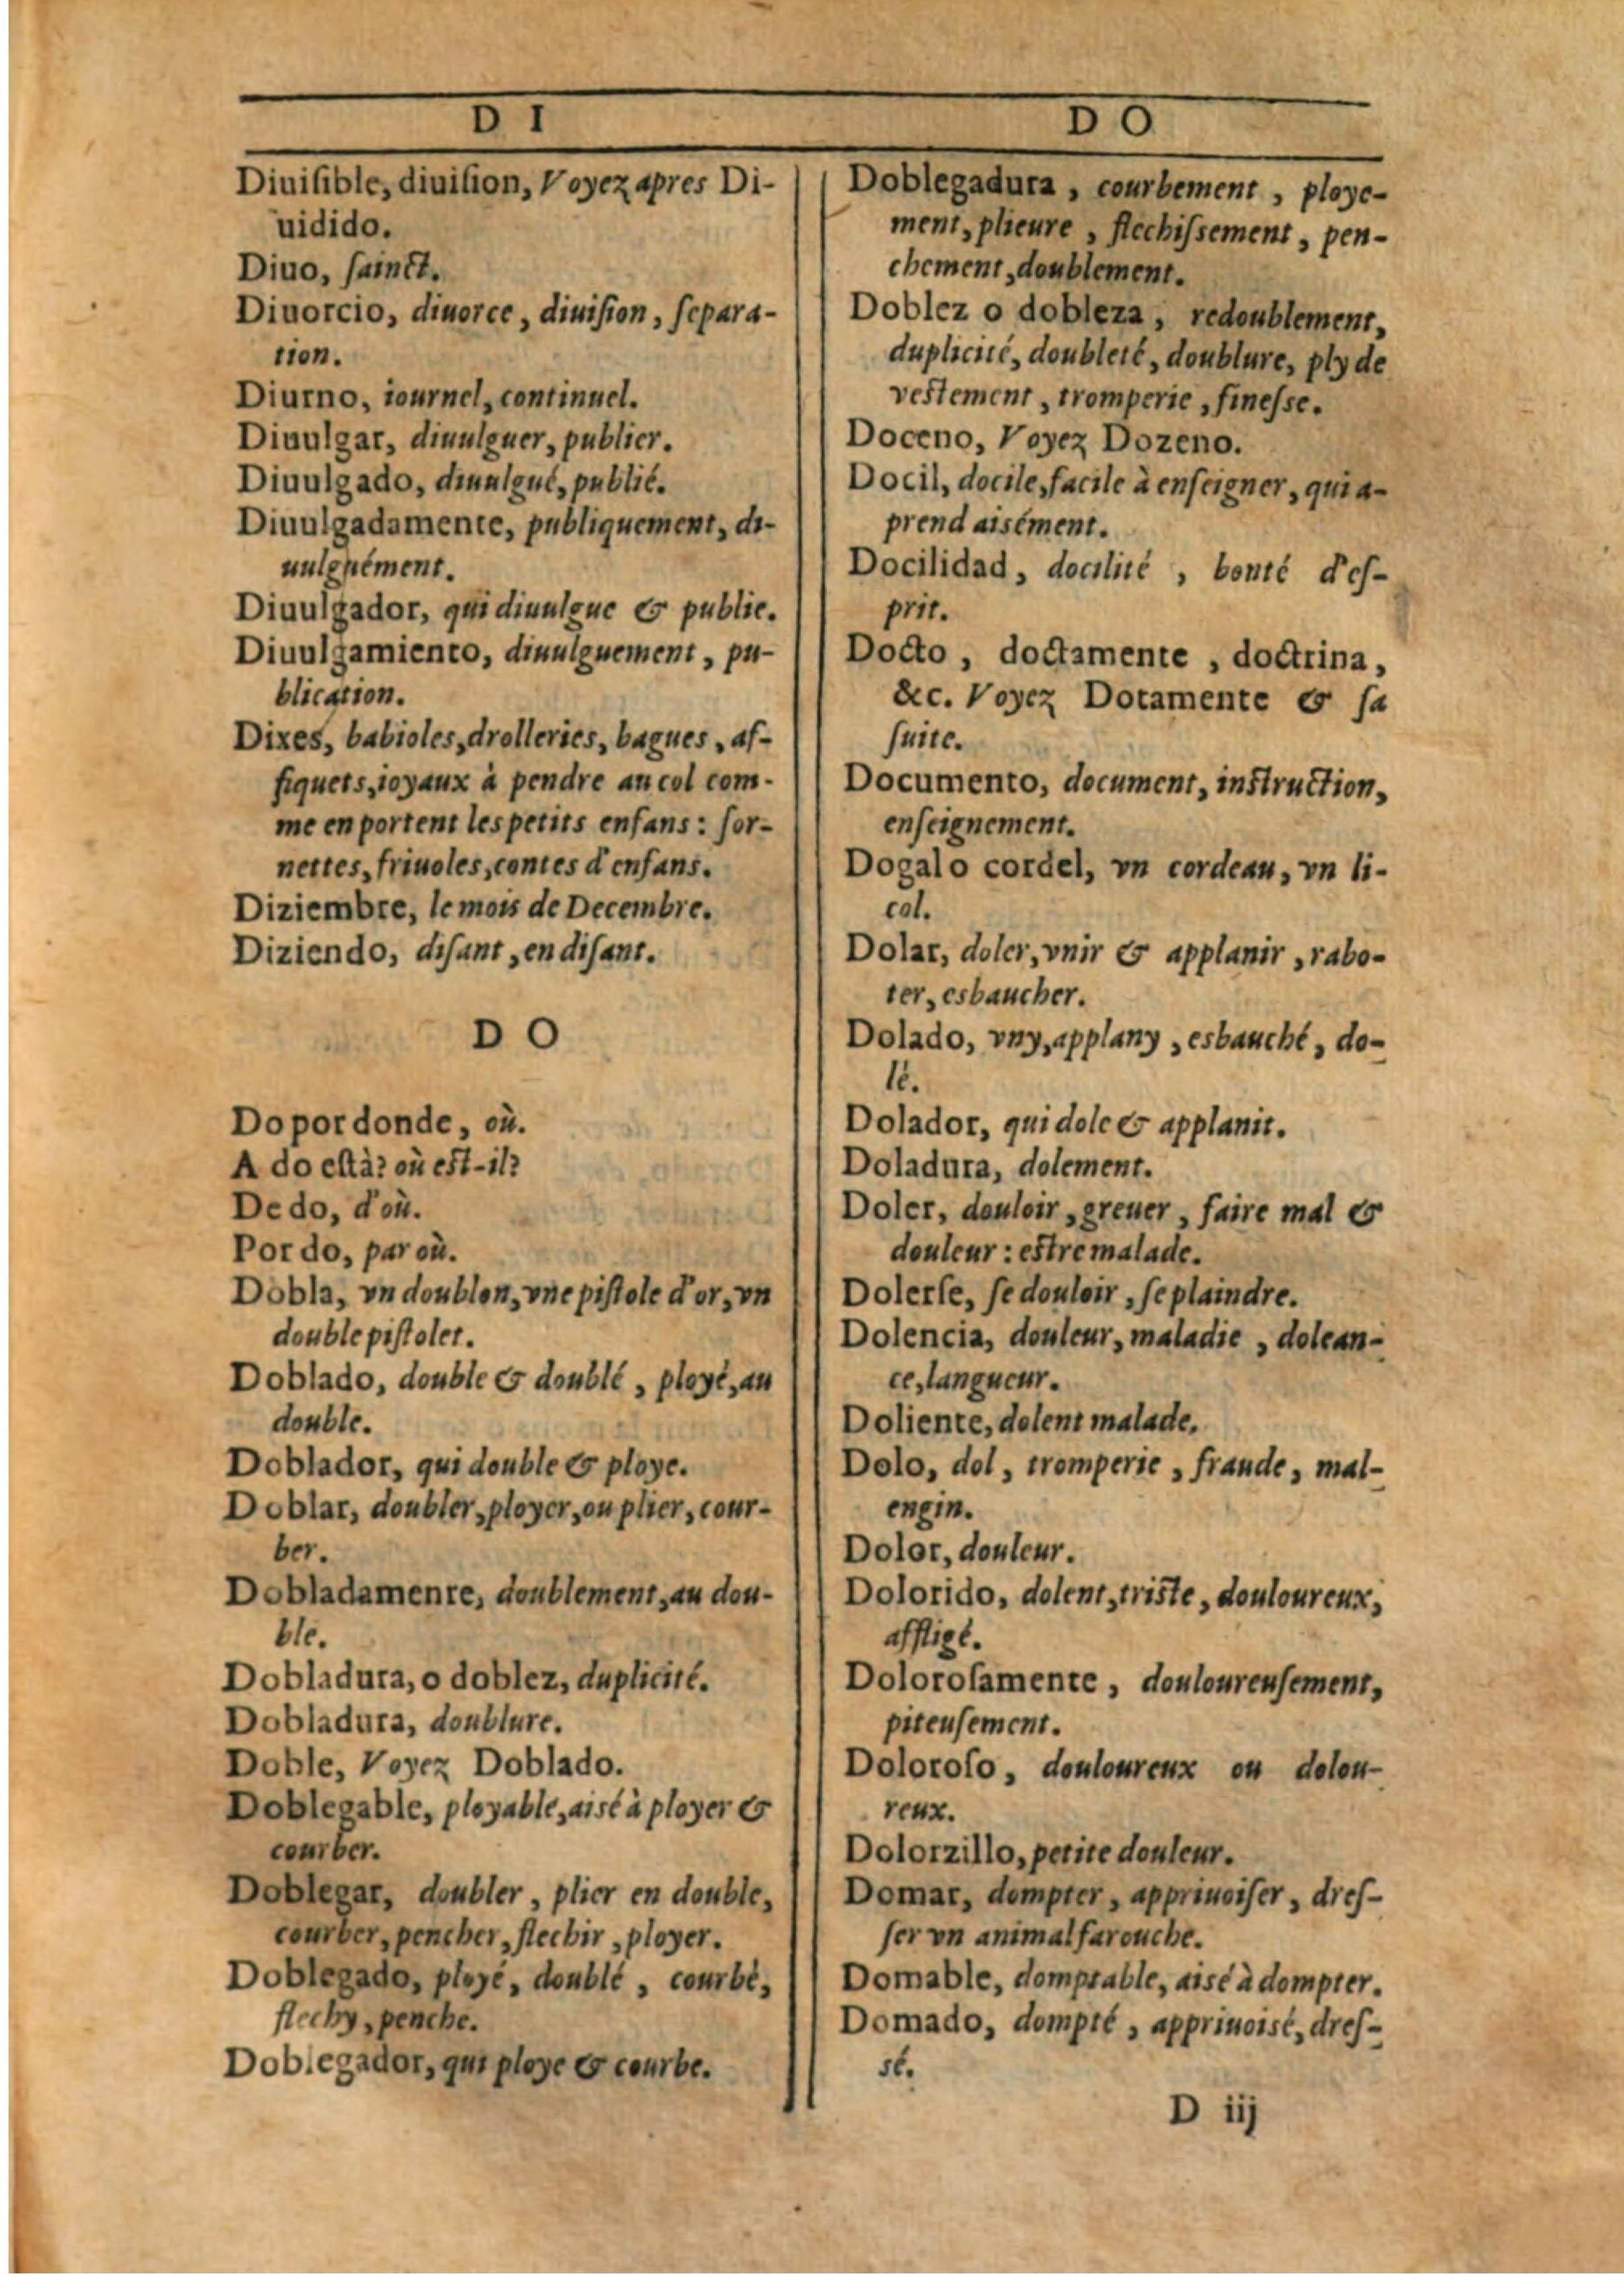 D I
Diuiſible, diuiſion, Voyez apres Di-
uidido.
Diuo, ſainct.
Diuorcio, diuorce, diuiſion, ſepara-
tion.
Diurno, iournel, continuel.
Diuulgar, diuulguer, publier.
Diuulgado, diuulgué, publié.
Diuulgadamente, publiquement, di-
uulguément.
Diuulgador, qui diuulgue & publie.
Diuulgamiento, diuulguement, pu-
blication.
Dixes, babioles, drolleries, bagues, af-
fiquets, ioyaux à pendre au col com-
me en portent les petits enfans: ſor-
nettes, friuoles, contes d'enfans.
Diziembre, le mois de Decembre.
Diziendo, diſant, en diſant.
D O
Do por donde, où.
A do eſtà? où eſt-il?
De do, d'où.
Por do, par où.
Dobla, vn doublon, vne piſtole d'or, vn
double piſtolet.
Doblado, double & doublé, ployé, au
double.
Doblador, qui double & ploye.
Doblar, doubler, ployer, ou plier, cour-
ber.
Dobladamente, doublement, au dou-
ble.
Dobladura, o doblez, duplicité.
Dobladura, doublure.
Doble, Voyez Doblado.
Doblegable, ployable, aisé à ployer &
courber.
Doblegar, doubler, plier en double,
courber, pencher, flechir, ployer.
Doblegado, ployé, doublé, courbé,
flechy, penche.
Doblegador, qui ploye & courbe.
D O
Doblegadura, courbement, ploye-
ment, plieure, flechiſsement, pen-
chement, doublement.
Doblez o dobleza, redoublement,
duplicité, doubleté, doublure, ply de
veſtement, tromperie, fineſse.
Doceno, Voyez Dozeno.
Docil, docile, facile à enſeigner, qui a-
prend aisément.
Docilidad, docilité, bonté d'eſ-
prit.
Docto, doctamente, doctrina,
&c. Voyez Dotamente & ſa
ſuite.
Documento, document, inſtruction,
enſeignement.
Dogal o cordel, vn cordeau, vn li-
col.
Dolar, doler, vnir & applanir, rabo-
ter, esbaucher.
Dolado, vny, applany, esbauché, do-
lé.
Dolador, qui dole & applanit.
Doladura, dolement.
Doler, douloir, greuer, faire mal &
douleur: eſtre malade.
Dolerſe, ſe douloir, ſe plaindre.
Dolencia, douleur, maladie, dolean-
ce, langueur.
Doliente, dolent malade.
Dolo, dol, tromperie, fraude, mal-
engin.
Dolor, douleur.
Dolorido, dolent, triſte, douloureux,
affligé.
Doloroſamente, douloureuſement,
piteuſement.
Doloroſo, douloureux ou dolou-
reux.
Dolorzillo, petite douleur.
Domar, dompter, appriuoiſer, dreſ-
ſer vn animal farouche.
Domable, domptable, aisé à dompter.
Domado, dompté, appriuoisé, dreſ-
sé.
D iij